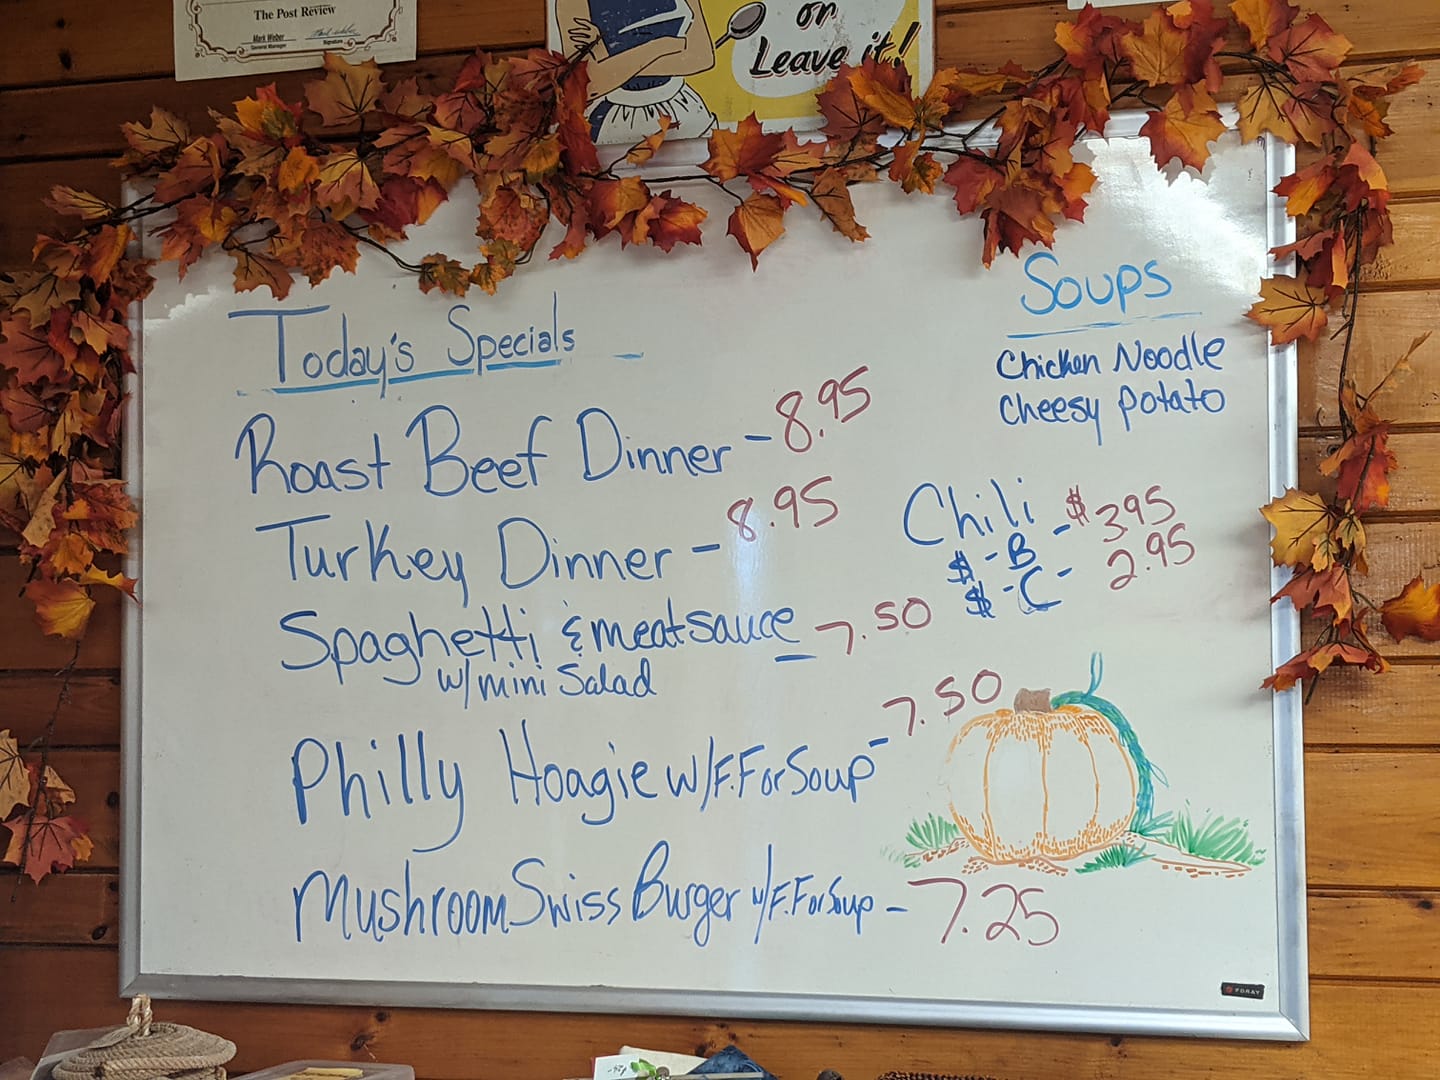 The Post Review
Mark Weber
General Manager
Signature
or
Leave it!
Today's Specials
Roast Beef Dinner - 8.95
Turkey Dinner - 8.95
Spaghetti & meatsauce - 7.50
w/ mini Salad
Philly Hoagie w/ F.F or Soup - 7.50
Mushroom Swiss Burger w/ F.F or Soup - 7.25
Soups
Chicken Noodle
Cheesy Potato
Chili
$ - B - $3.95
$ - C - 2.95
FORAY